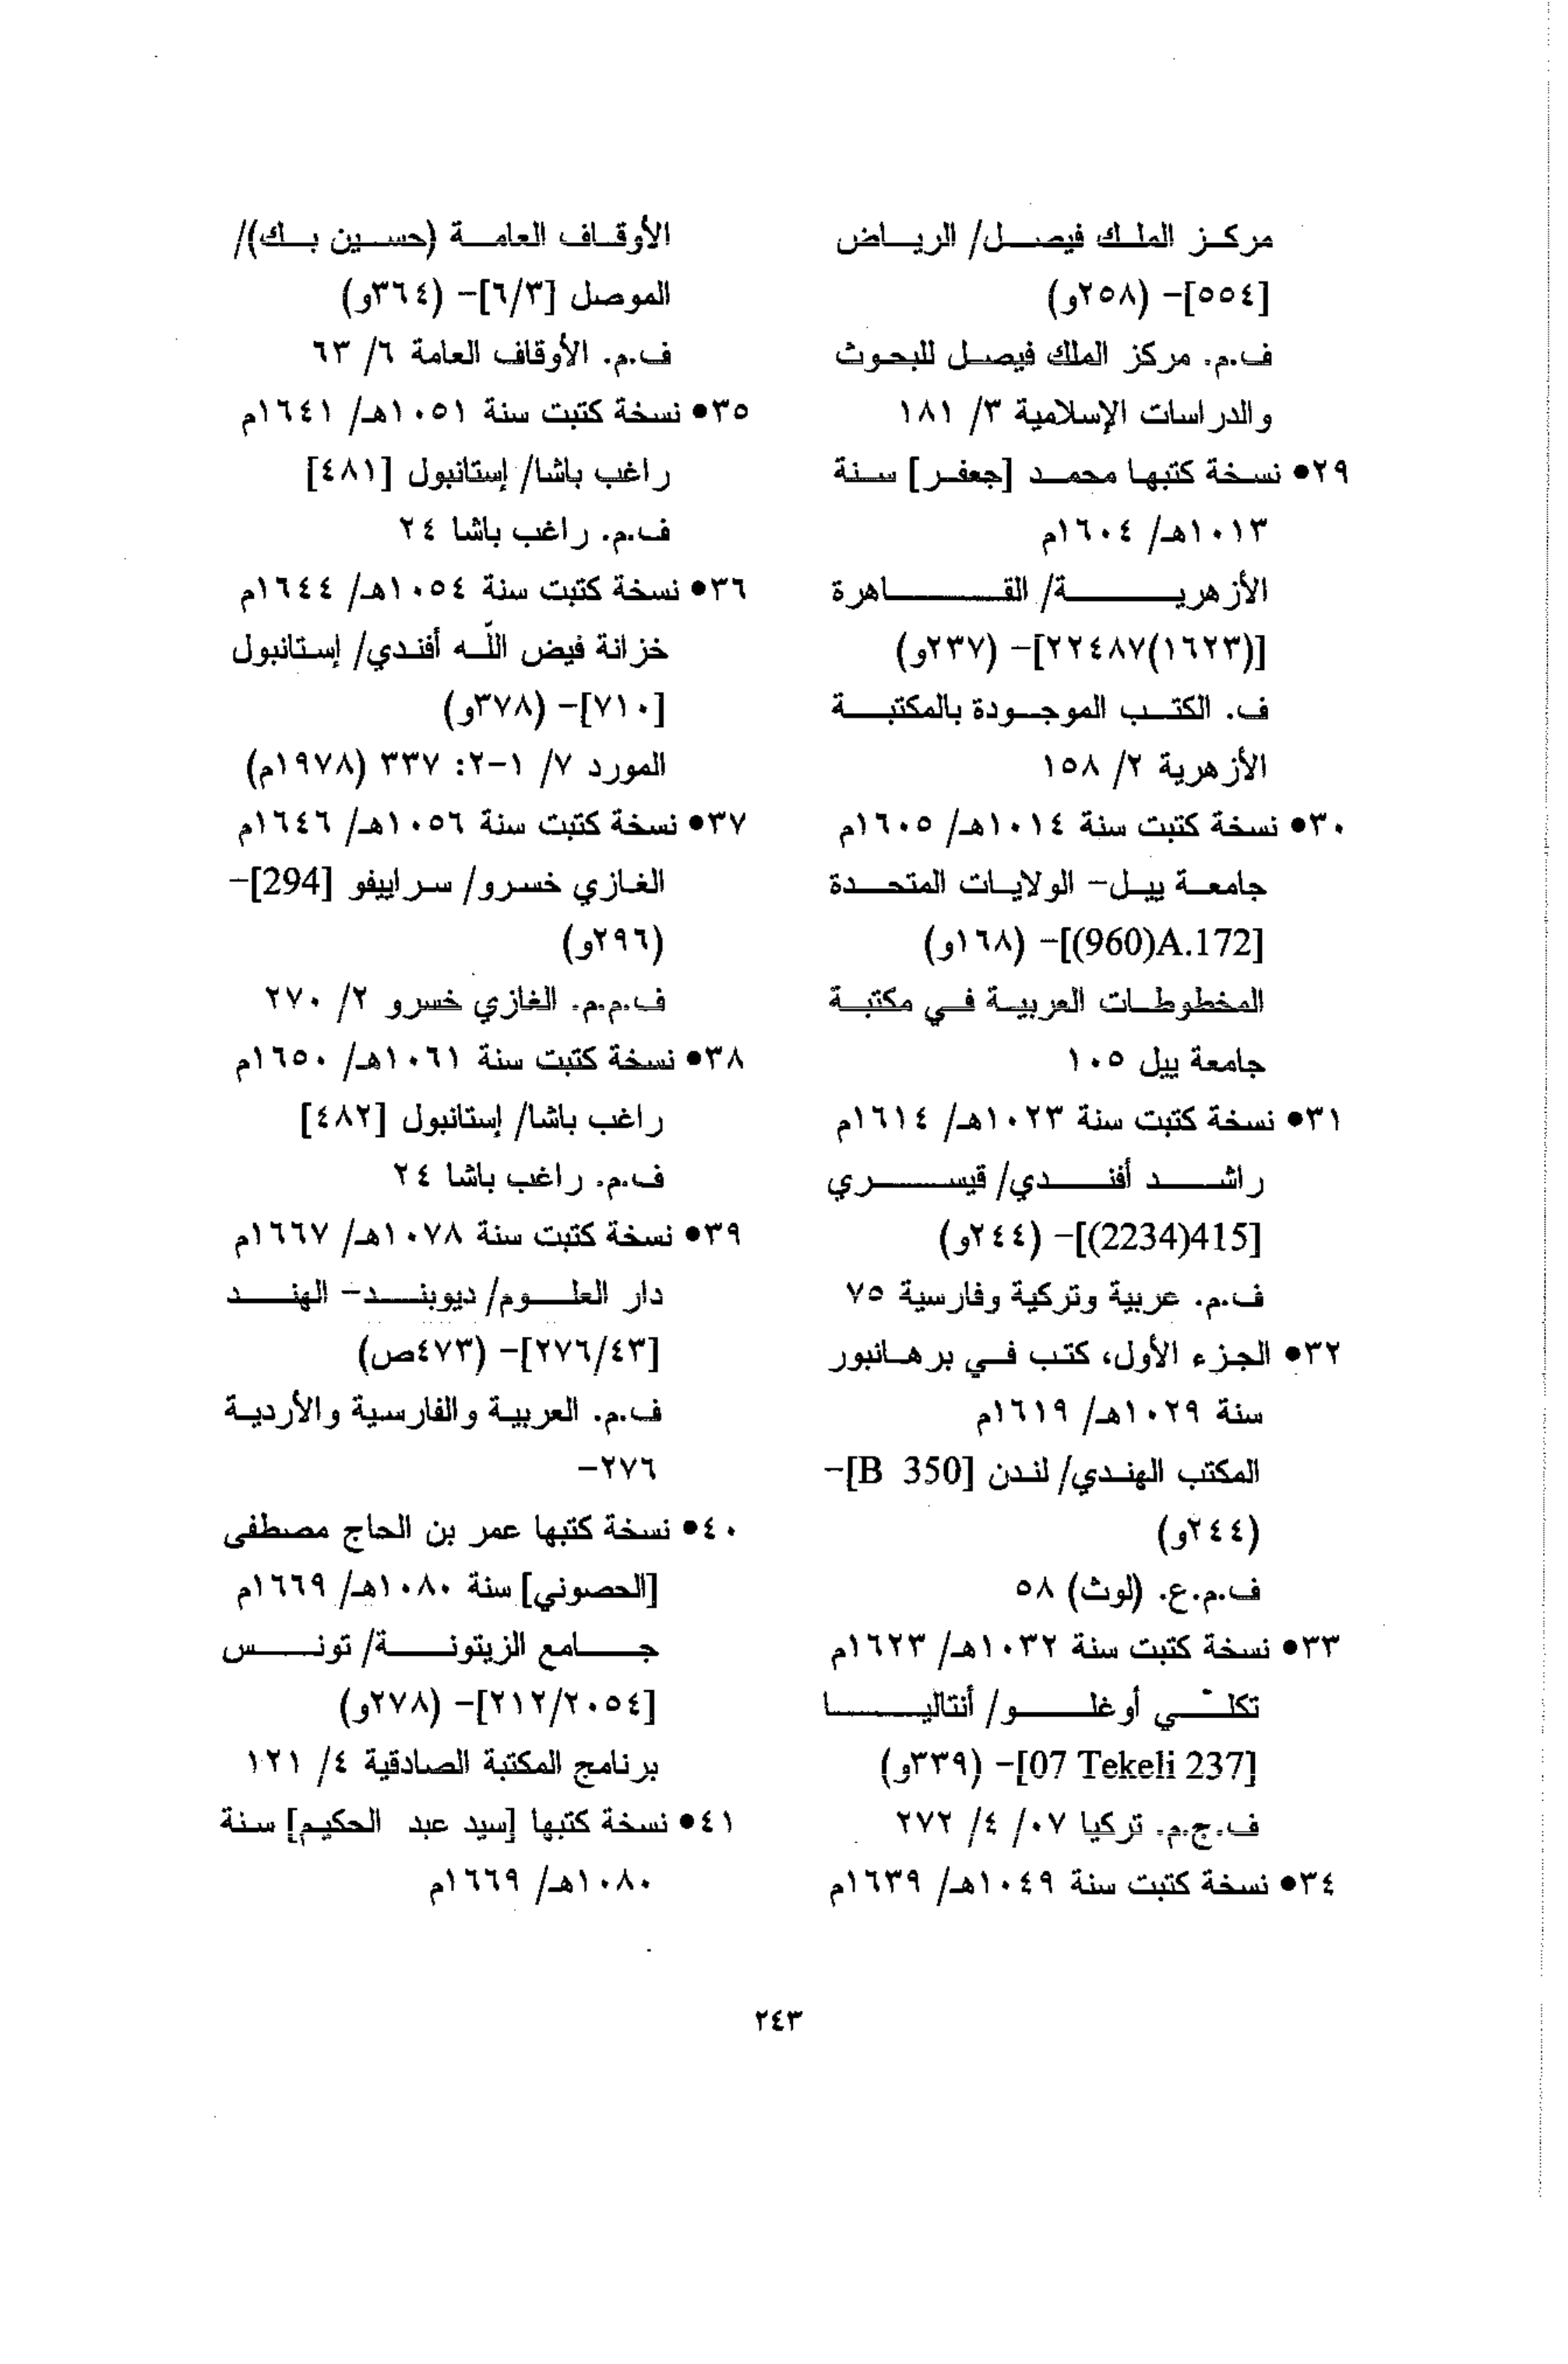 مركز الملك فيصل/ الرياض
[٥٥٤]- (٢٥٨و)
ف.م. مركز الملك فيصل للبحوث
والدراسات الإسلامية ٣/ ١٨١
٢٩● نسخة كتبها محمد [جعفر] سنة
١٠١٣هـ/ ١٦٠٤م
الأزهرية/ القاهرة
[(١٦٢٣)٢٢٤٨٧]- (٢٣٧و)
ف. الكتب الموجودة بالمكتبة
الأزهرية ٢/ ١٥٨
٣٠● نسخة كتبت سنة ١٠١٤هـ/ ١٦٠٥م
جامعة ييل- الولايات المتحدة
[A.172(960)]- (١٦٨و)
المخطوطات العربية في مكتبة
جامعة ييل ١٠٥
٣١● نسخة كتبت سنة ١٠٢٣هـ/ ١٦١٤م
راشد أفندي/ قيسري
[415(2234)]- (٢٤٤و)
ف.م. عربية وتركية وفارسية ٧٥
٣٢● الجزء الأول، كتب في برهانبور
سنة ١٠٢٩هـ/ ١٦١٩م
المكتب الهندي/ لندن [B 350]-
(٢٤٤و)
ف.م.ع. (لوث) ٥٨
٣٣● نسخة كتبت سنة ١٠٣٢هـ/ ١٦٢٣م
تكلي أوغلو/ أنتاليا
[07 Tekeli 237]- (٣٣٩و)
ف.ج.م. تركيا ٠٧/ ٤/ ٢٧٢
٣٤● نسخة كتبت سنة ١٠٤٩هـ/ ١٦٣٩م
الأوقاف العامة (حسين بك)/
الموصل [٦/٣]- (٣٦٤و)
ف.م. الأوقاف العامة ٦/ ٦٣
٣٥● نسخة كتبت سنة ١٠٥١هـ/ ١٦٤١م
راغب باشا/ إستانبول [٤٨١]
ف.م. راغب باشا ٢٤
٣٦● نسخة كتبت سنة ١٠٥٤هـ/ ١٦٤٤م
خزانة فيض اللّه أفندي/ إستانبول
[٧١٠]- (٣٧٨و)
المورد ٧/ ١-٢: ٣٣٧ (١٩٧٨م)
٣٧● نسخة كتبت سنة ١٠٥٦هـ/ ١٦٤٦م
الغازي خسرو/ سراييفو [294]-
(٢٩٦و)
ف.م.م. الغازي خسرو ٢/ ٢٧٠
٣٨● نسخة كتبت سنة ١٠٦١هـ/ ١٦٥٠م
راغب باشا/ إستانبول [٤٨٢]
ف.م. راغب باشا ٢٤
٣٩● نسخة كتبت سنة ١٠٧٨هـ/ ١٦٦٧م
دار العلوم/ ديوبند- الهند
[٢٧٦/٤٣]- (٤٧٣ص)
ف.م. العربية والفارسية والأردية
٢٧٦-
٤٠● نسخة كتبها عمر بن الحاج مصطفى
[الحصوني] سنة ١٠٨٠هـ/ ١٦٦٩م
جامع الزيتونة/ تونس
[٢١٢/٢٠٥٤]- (٢٧٨و)
برنامج المكتبة الصادقية ٤/ ١٢١
٤١● نسخة كتبها [سيد عبد الحكيم] سنة
١٠٨٠هـ/ ١٦٦٩م
٢٤٣